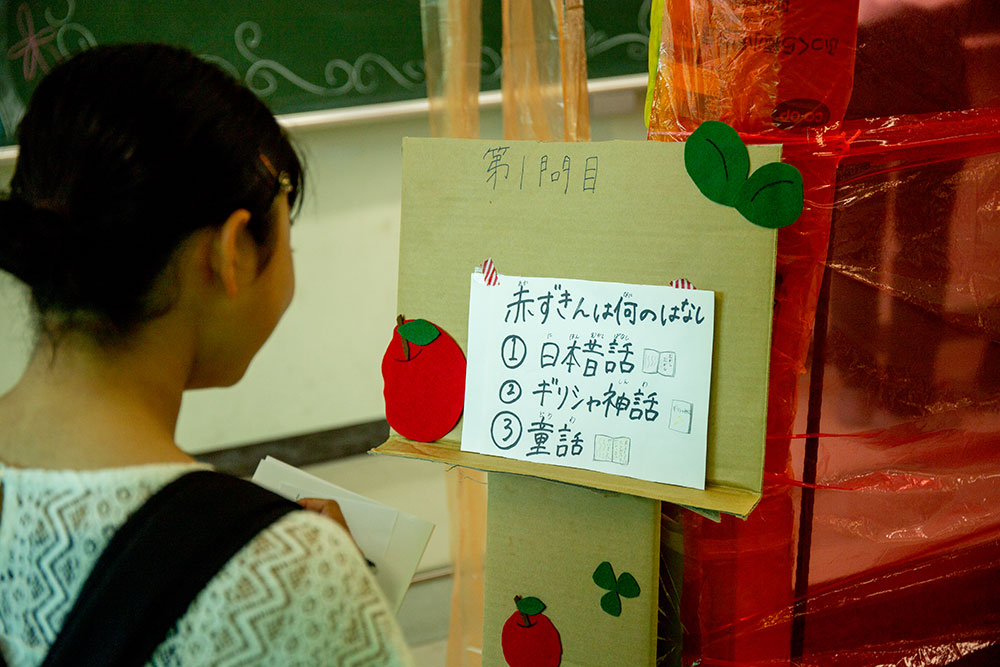 第1問目
赤ずきんは何のはなし
① 日本昔話
② ギリシャ神話
③ 童話